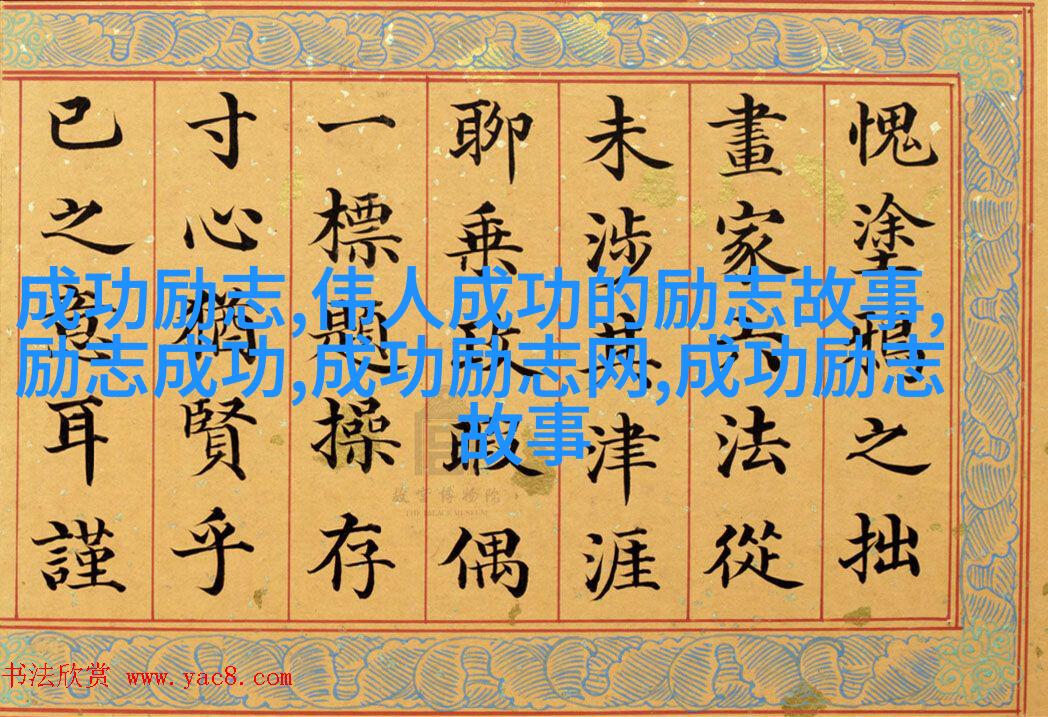 愧塗之拙
畫家六法從
未涉其津涯
聊乘政暇偶
一標題操存
寸心猶賢乎
已之意耳謹
成功励志,伟人成功的励志故事,
励志成功,成功励志网,成功励志
故事
故宫博物院
THE PALACE MUSEUM
书法欣赏 www.yac8.com